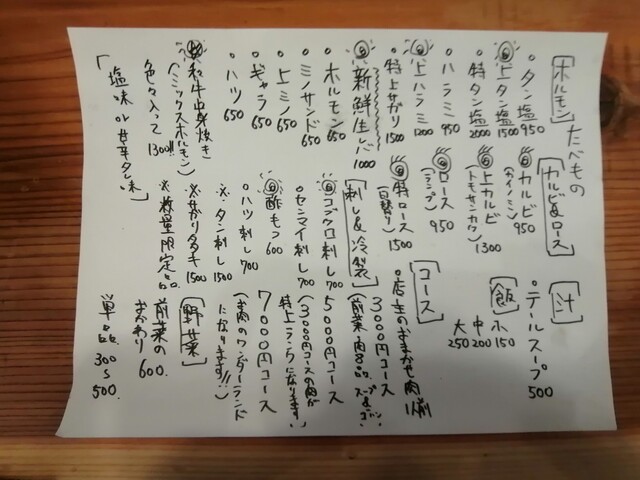 たべもの
［ホルモン］
・タン塩 950
上タン塩 1500
・特タン塩 2000
・ハラミ 950
上ハラミ 1200
・特上サガリ 1500
新鮮生レバ 1000
・ホルモン 650
・ミノサンド 650
・上ミノ 650
・ギャラ 650
・ハツ 650
和牛中身炊き
（ミックスホルモン）
色々入って 1300!!
「塩味 or 甘辛タレ味」
［カルビ&ロース］
カルビ 950
上カルビ 1300
（トモサンカク）
ロース 950
（ランプ）
特ロース 1500
（日替り）
［刺し&冷製］
コブクロ刺し 700
・センマイ刺し 700
酢もつ 600
・ハツ刺し 700
※・タン刺し 1500
※・サガリタタキ 1500
※数量限定品
［汁］
・テールスープ 500
［飯］
小 150
中 200
大 250
［コース］
・店主のおまかせ 1人前
3000円コース
5000円コース
（3000円コースの肉が
特上ランクになります）
7000円コース
（お肉のワンダーランド
になります!!）
［野菜］
前菜の
おかわり 600
単品 300〜
500